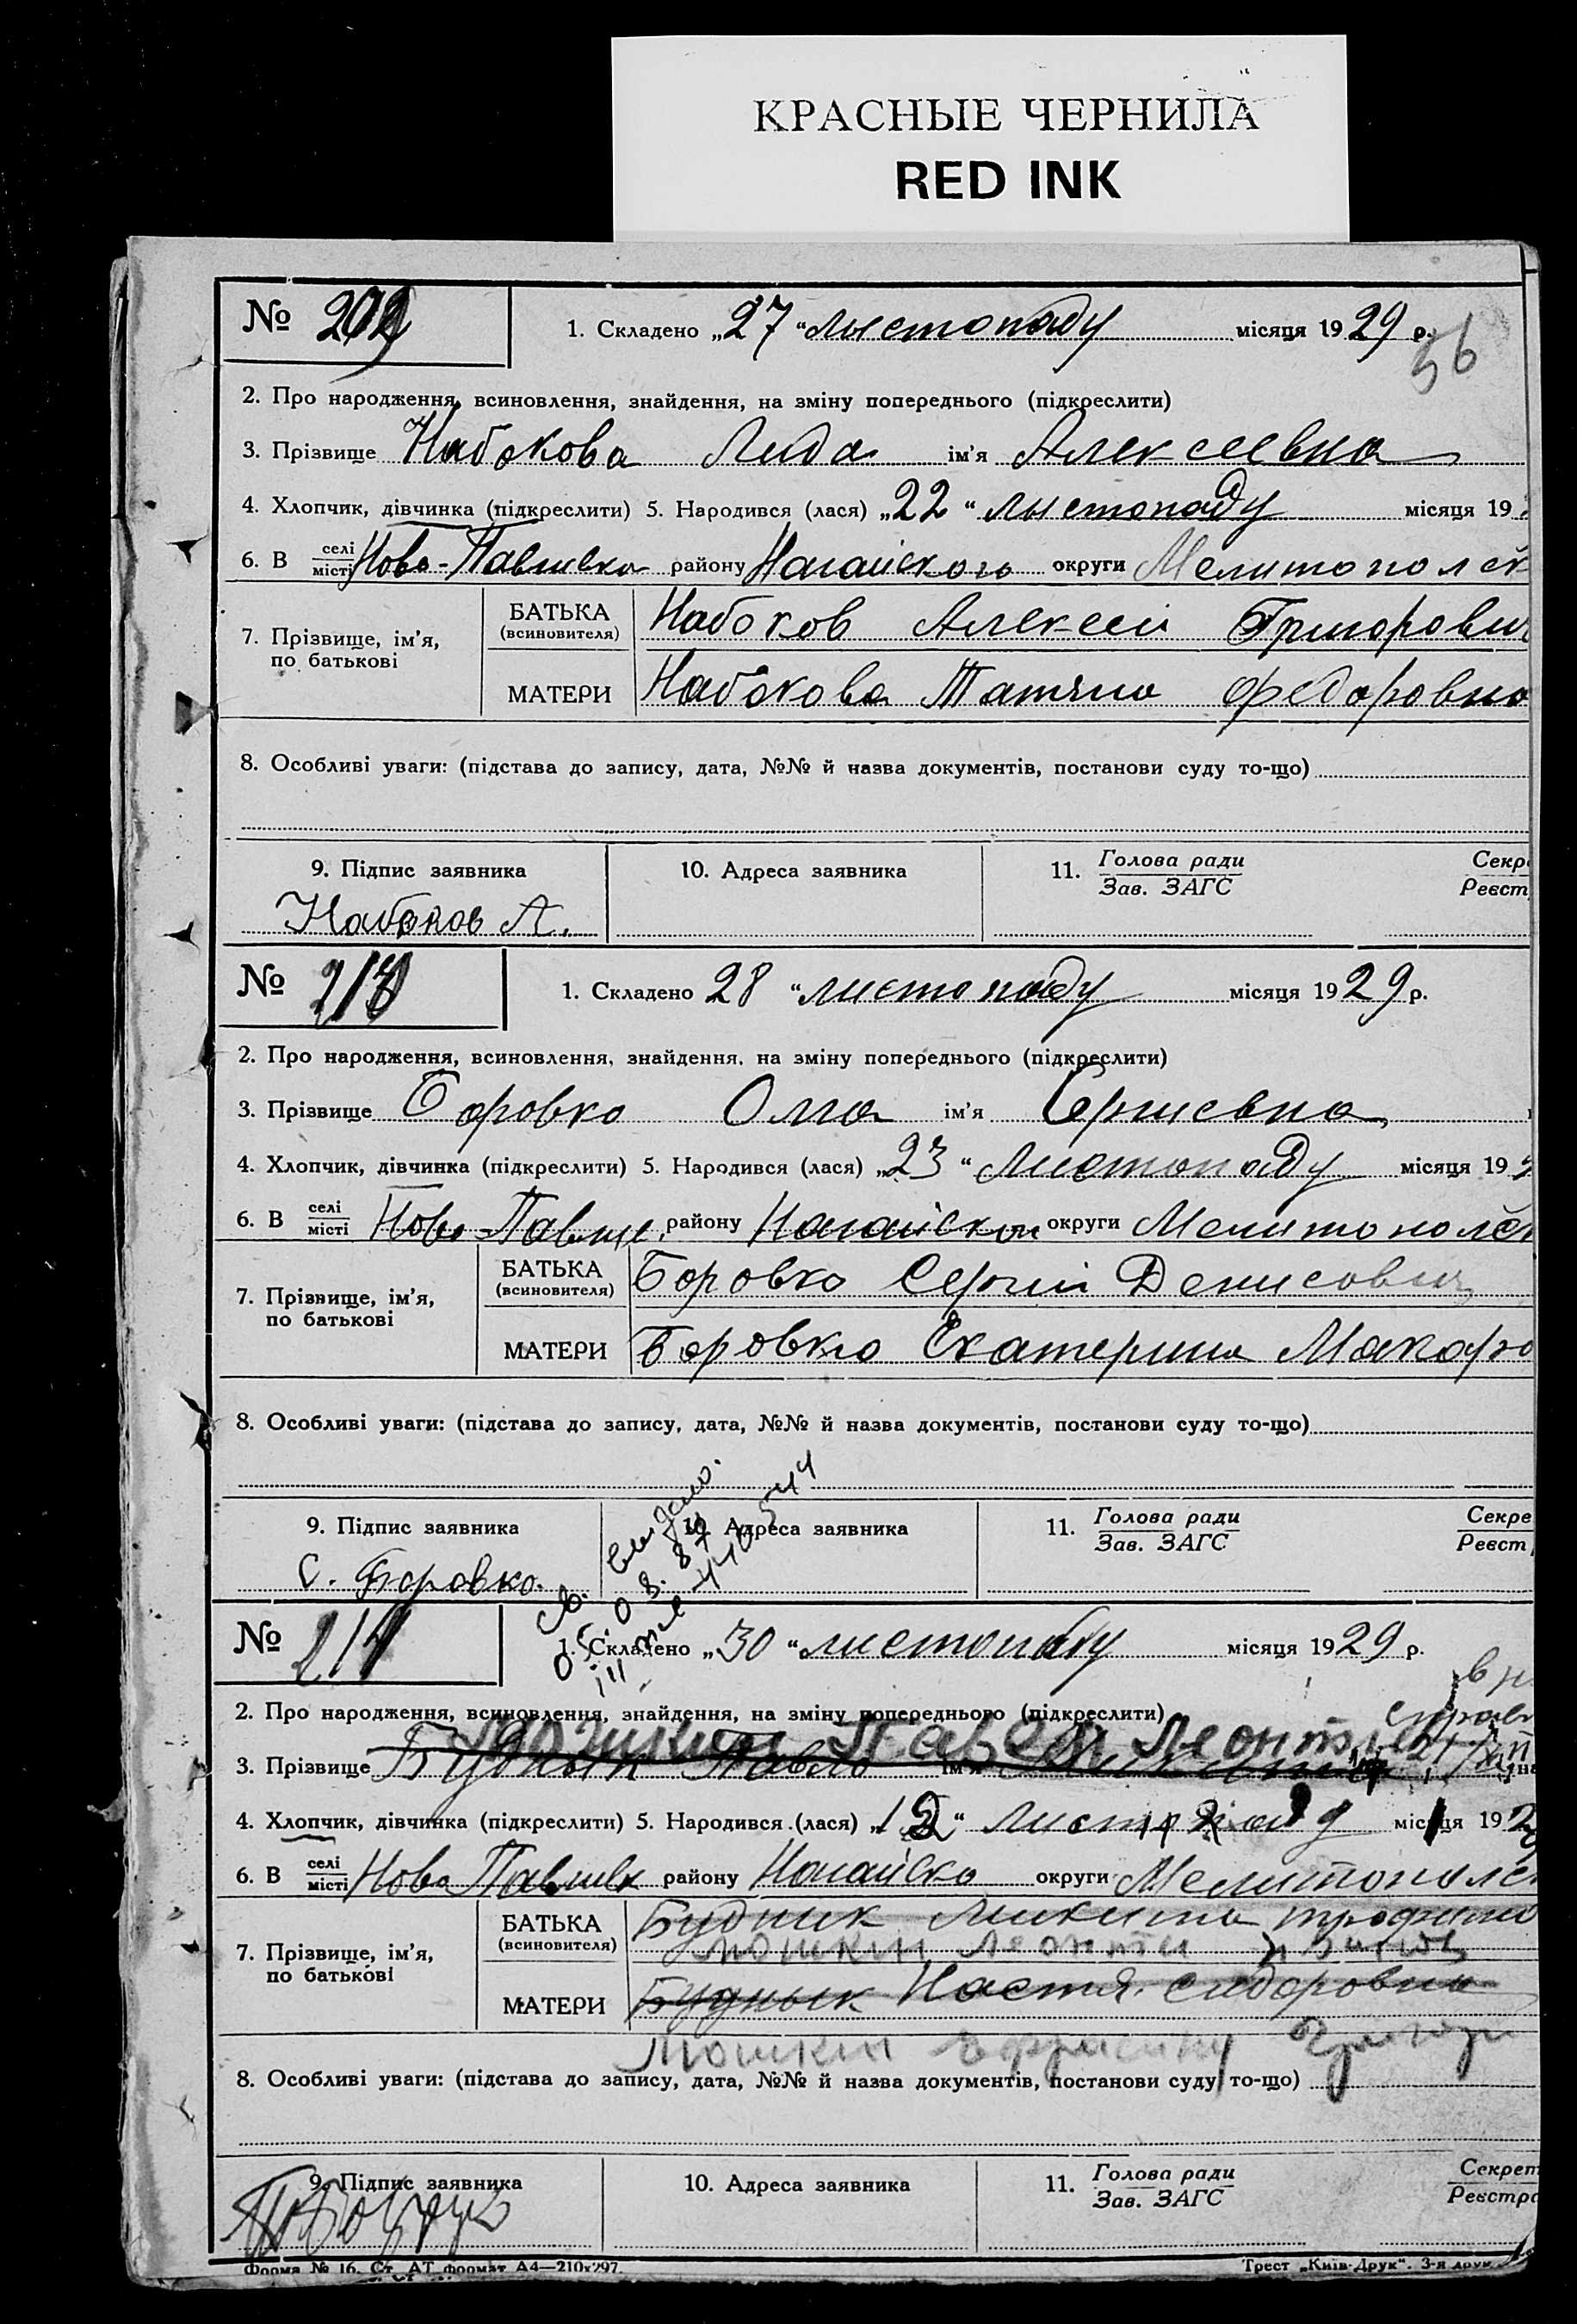 КРАСНЫЕ ЧЕРНИЛА
RED INK
№ 212 1. Складено „27“ лыстопаду місяця 1929 р.
56
2. Про народження, всиновлення, знайдення, на зміну попереднього (підкреслити)
3. Прізвище Набокова Лида ім'я Алексеевна
4. Хлопчик, дівчинка (підкреслити) 5. Народився (лася) „22“ лыстопаду місяця 19
6. В селі/місті Ново-Павливка району Нагайского округи Мелитополск
7. Прізвище, ім'я, по батькові
БАТЬКА (всиновителя) Набоков Алексей Григорович
МАТЕРИ Набокова Татяна Федоровна
8. Особливі уваги: (підстава до запису, дата, №№ й назва документів, постанови суду то-що)
9. Підпис заявника 10. Адреса заявника 11. Голова ради/Зав. ЗАГС Секр Реєст
Набоков А.
№ 213 1. Складено 28 “листопаду місяця 1929 р.
2. Про народження, всиновлення, знайдення, на зміну попереднього (підкреслити)
3. Прізвище Боровко Ольга ім'я Сергиевна
4. Хлопчик, дівчинка (підкреслити) 5. Народився (лася) „23“ Листопаду місяця 19
6. В селі/місті Ново-Павлив. району Нагайском округи Мелитополск
7. Прізвище, ім'я, по батькові
БАТЬКА (всиновителя) Боровко Сергий Денисович
МАТЕРИ Боровко Екатерина Макаро
8. Особливі уваги: (підстава до запису, дата, №№ й назва документів, постанови суду то-що)
св. выдано.
9. Підпис заявника 10. Адреса заявника 11. Голова ради/Зав. ЗАГС Секре Реєст
С. Боровко.
№ 214 1. Складено „30“ листопаду місяця 1929 р.
2. Про народження, всиновлення, знайдення, на зміну попереднього (підкреслити)
Мошкин Павел Леонтьев
3. Прізвище Буднык Павло ім'я
4. Хлопчик, дівчинка (підкреслити) 5. Народився (лася) „12“ листопад місяця 19
6. В селі/місті Ново Павливк району Нагайско округи Мелитополск
7. Прізвище, ім'я, по батькові
БАТЬКА (всиновителя) Будник Микита Трофимо
Мошкин Леонти
МАТЕРИ Буднык Настя Сидоровна
Мошкин Григор
8. Особливі уваги: (підстава до запису, дата, №№ й назва документів, постанови суду то-що)
9. Підпис заявника 10. Адреса заявника 11. Голова ради/Зав. ЗАГС Секрет Реєстра
Форма № 16. Ст. АТ формат А4—210х297. Трест „Київ-Друк“. 3-я друк.